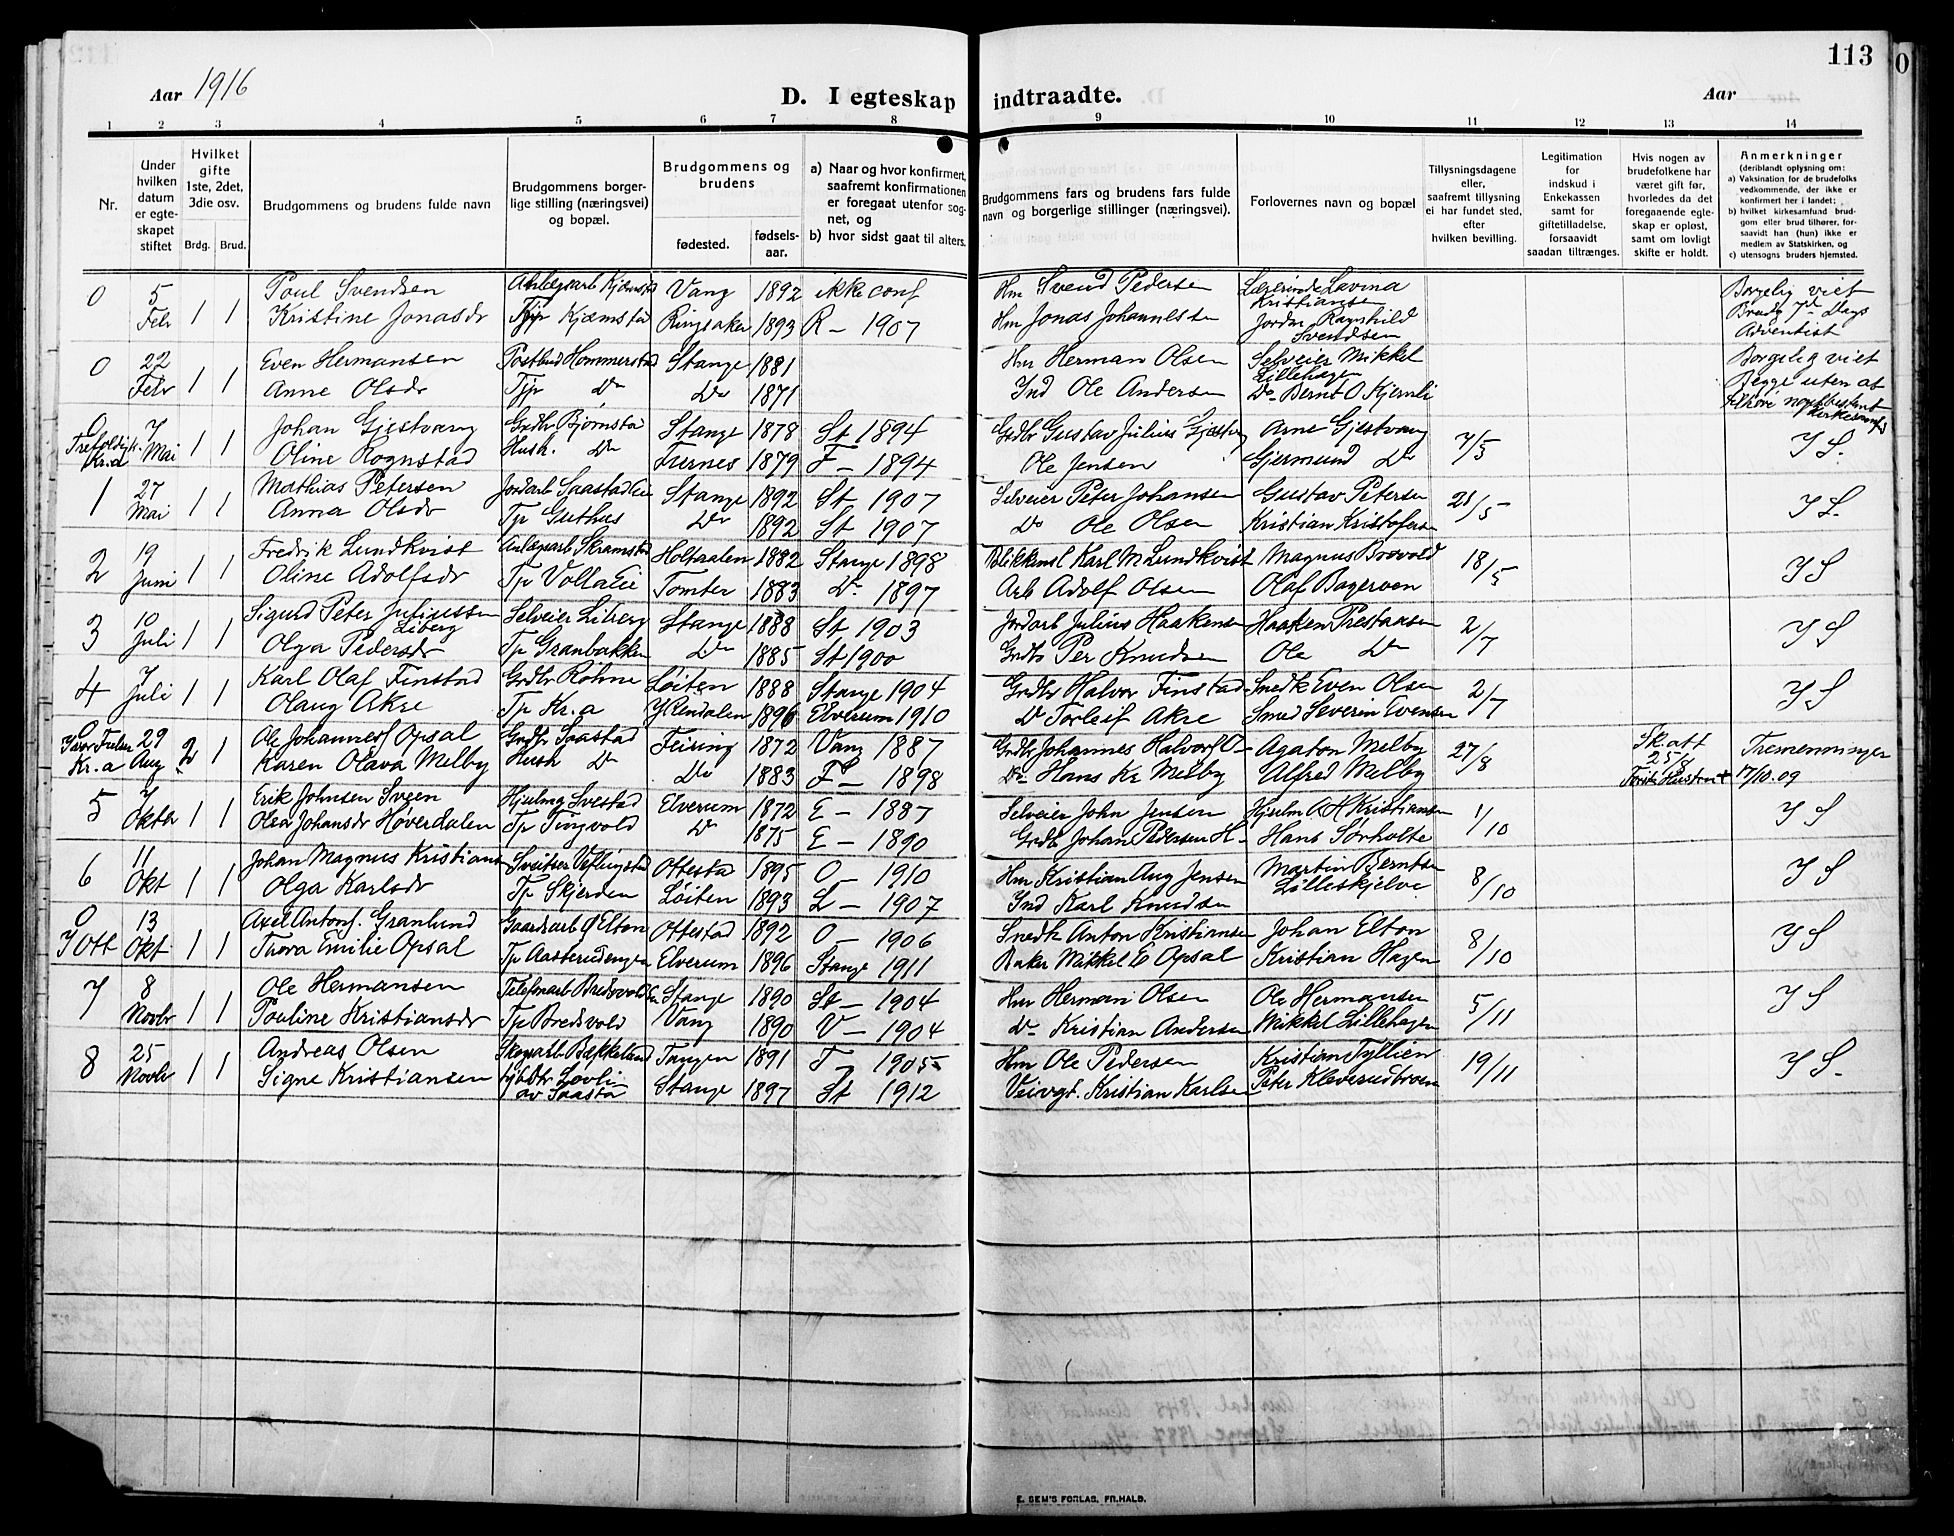 113
Aar 1916
D. I egteskap indtraadte.
Aar
1 2 3 4 5 6 7 8 9 10 11 12 13 14
Nr.
Under hvilken datum er egteskapet stiftet
Hvilket gifte 1ste, 2det, 3die osv.
Brdg. Brud.
Brudgommens og brudens fulde navn
Brudgommens borgerlige stilling (næringsvei) og bopæl.
Brudgommens og brudens
fødested.
fødselsaar.
a) Naar og hvor konfirmert, saafremt konfirmationen er foregaat utenfor sognet, og
b) hvor sidst gaat til alters.
Brudgommens fars og brudens fars fulde navn og borgerlige stillinger (næringsvei).
Forlovernes navn og bopæl
Tillysningsdagene eller, saafremt tillysning ei har fundet sted, efter hvilken bevilling.
Legitimation for indskud i Enkekassen samt for giftetilladelse, forsaavidt saadan tiltrænges.
Hvis nogen av brudefolkene har været gift før, hvorledes da det foregaaende egteskap er opløst, samt om lovligt skifte er holdt.
Anmerkninger (deriblandt oplysning om:
a) Vaksination for de brudefolks vedkommende, der ikke er konfirmert her i landet;
b) hvilket kirkesamfund brudgom eller brud tilhører, forsaavidt han (hun) ikke er medlem av Statskirken, og
c) utensogns bruders hjemsted.
0 5 Febr 1 1 Poul Svendsen Anlægsarb Kjæmstad Vang 1892 ikke conf Hm Svend Pedersen Lærerinde Lavina Kristiansen Borgelig viet
Kristine Jonasdr Tjp Kjæmstad Ringsaker 1893 R – 1907 Hm Jonas Johannessen Jordm Ragnhild Svendsen Brud 7de Dags Adventist
0 22 Febr 1 1 Even Hermansen Postbud Hommerstad Stange 1881 Hm Herman Olsen Selveier Mikkel Lillehagen Borgelig viet
Anne Olsdr Tjp Do Do 1871 Ind Ole Andersen Do Bernt O Kjernli Begge uten at tilhøre noget bestemt Kirkesamfd
0 Kr.a 7 Mai 1 1 Johan Gjestvang Grdbr Bjørnstad Stange 1878 St 1894 Grdbr Gustav Julius Gjestvang Arne Gjestvang 7/5 I S.
Oline Rognstad Hush. Do Furnes 1879 F – 1894 Ole Jensen Gjermund Do
1 27 Mai 1 1 Mathias Petersen Jordarb Saastad Eie Stange 1892 St 1907 Selveier Peter Johansen Gustav Petersen 21/5 I S.
Anna Olsdr Tp Guthus Do 1892 St 1907 Do Ole Olsen Kristian Kristofersen
2 19 Juni 1 1 Fredrik Lundkvist Anlægsarb Skramstad Holtaalen 1882 Stange 1898 Blikkensl Karl M Lundkvist Magnus Brovold 18/5 I S
Oline Adolfsdr Tp Volla Eie Tomter 1883 Do 1897 Arb Adolf Olsen Olaf Bagerven
3 10 Juli 1 1 Sigurd Peter Juliussen Liberg Selveier Liberg Stange 1888 St 1903 Jordarb Julius Haakensen Haaken Prestaasen 2/7 I S
Olga Pedersdr Tp Granbakken Do 1885 St 1900 Grdbr Per Knudsen Ole Do
4 7 Juli 1 1 Karl Olaf Finstad Grdbr Rohne Løiten 1888 Stange 1904 Grdbr Halvor Finstad Snedk Even Olsen 2/7 I S
Olaug Akre Tp Kr.a Y Rendalen 1896 Elverum 1910 Do Torleif Akre Smed Severin Evensen
0 Kr.a 29 Aug 2 1 Ole Johannesf Opsal Grdbr Saastad Feiring 1872 Vang 1887 Grdbr Johannes Halvorsf O– Agaton Melby 27/8 Sk.att 25/8 Tremenninger
Karen Olava Melby Hush Do Do 1883 F – 1898 Do Hans Kr Melby Alfred Melby 17/10.09
5 7 Oktbr 1 1 Erik Johnsen Sveen Hjulmg Svestad Elverum 1872 E – 1887 Selveier John Jensen Hjulm A H Kristiansen 1/10 I S
Olea Johansdr Høverdalen Tp Tingvold Do 1875 E – 1890 Grdbr Johan Pedersen H– Hans Sørholte
6 11 Okt 1 1 Johan Magnus Kristians Sveitser Veflingstad Ottestad 1895 O – 1910 Hm Kristian Aug Jensen Martin Berntsen Lilleskjelve 8/10 I S
Olga Karlsdr Tp Skjerden Løiten 1893 L – 1907 Ind Karl Knudsen
0 I Ott 13 Okt 1 1 Axel Antonf. Granlund Gaardsarb Elton Ottestad 1892 O – 1906 Snedk Anton Kristiansen Johan Elton 8/10 I S
Thora Emilie Opsal Tp Aasterudengen Elverum 1896 Stange 1911 Baker Mikkel E Opsal Kristian Hagen
7 8 Novbr 1 1 Ole Hermansen Telefonarb Bredsvold Stange 1890 St – 1904 Hm Herman Olsen Ole Hermansen 5/11 I S
Pouline Kristiansdr Tp Bredsvold Vang 1890 V – 1904 Do Kristian Andersen Mikkel Lillehagen
8 25 Novbr 1 1 Andreas Olsen Skogsarb Bækkelund Tangen 1891 T – 1905 Hm Ole Pedersen Kristian Tyllien 19/11 I S.
Signe Kristiansen Lovli av Saasta Stange 1897 St 1912 Veivgt. Kristian Karlsen Peter Kleverudbroen
E. SEM'S FORLAG, FR.HALD.